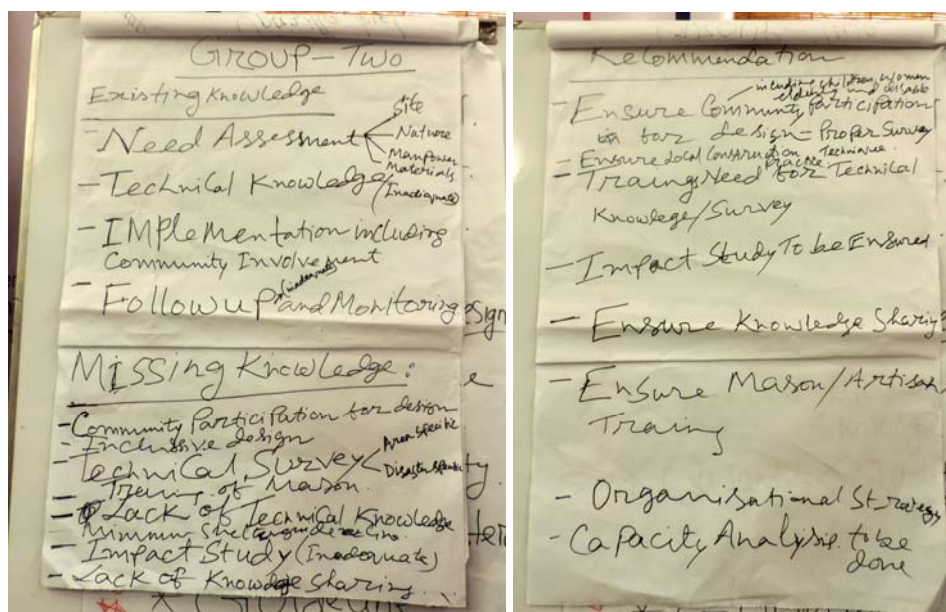 Group-Two
Existing Knowledge
- Need Assessment
Site
Nature
Manpower
Materials
- Technical Knowledge/
(Inadiquate)
- IMplementation including
Community Involvement
- Followup and Monitoring
Missing Knowledge:
- Community Participation for design
- Inclussive design
- Technical Survey
Area specific
Disaster specific
- Training of Mason.
- Lack of Technical Knowledge
- Impact Study (Inadequate)
- Lack of Knowledge sharing..
Recommendation
including children, women
elderly and dissable
- Ensure Community participation
for design = Proper Survey
- Ensure Local Construction Technique.
- Traings Need for Technical
Knowlege/Survey
- Impact Study To be Ensured
- Ensure Knowledge Sharing
- Ensure Mason/Artisan
Traing
- Organisational Strategy
- Capacity Analysis. to be
done